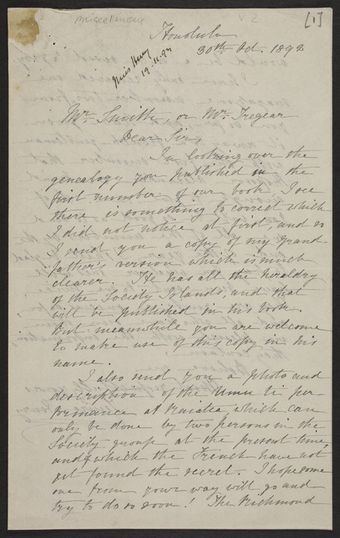 Miscellaneous
V 2
[1]
Honolulu
30th Oct. 1892
Miss Henry
19.11.92
Mr. Smith, or Mr. Tregear
Dear Sir,
In looking over the
genealogy you published in the
first number of our book I see
there is something to correct which
I did not notice at first, and so
I send you a copy of my grand-
father's version which is much
clearer. He has all the heraldry
of the Society Islands, and that
will be published in his book.
But meanwhile you are welcome
to make use of this copy in his
name.
I also send you a photo and
description of the Umu Ti per
formance at Raiatea, which can
only be done by two persons in the
Society group at the present time,
and of which the French have not
yet found the secret. I hope some
one from your way will go and
try to do so soon! The Richmond